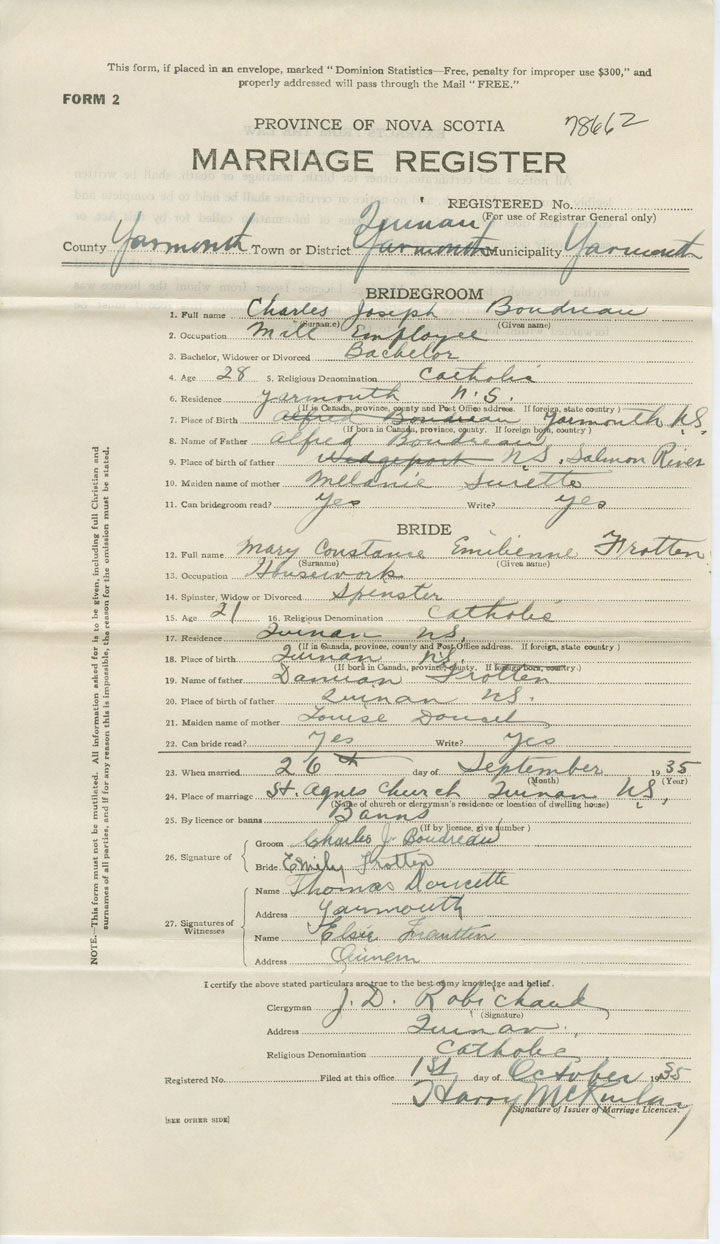 This form, if placed in an envelope, marked "Dominion Statistics—Free, penalty for improper use $300," and
properly addressed will pass through the Mail "FREE."
FORM 2
PROVINCE OF NOVA SCOTIA 78662
MARRIAGE REGISTER
REGISTERED No.
(For use of Registrar General only)
Quinan
County Yarmouth Town or District Yarmouth Municipality Yarmouth
BRIDEGROOM
1. Full name Charles Joseph Boudreau
(Surname) (Given name)
2. Occupation Mill Employee
3. Bachelor, Widower or Divorced Bachelor
4. Age 28 5. Religious Denomination Catholic
6. Residence Yarmouth N.S.
(If in Canada, province, county and Post Office address. If foreign, state country)
7. Place of Birth Alfred Boudreau Yarmouth N.S.
(If born in Canada, province, county. If foreign born, country)
8. Name of Father Alfred Boudreau
9. Place of birth of father Wedgeport N.S. Salmon River
10. Maiden name of mother Melanie Surette
11. Can bridegroom read? Yes Write? Yes
BRIDE
12. Full name Mary Constance Emilienne Frotten
(Surname) (Given name)
13. Occupation Housework
14. Spinster, Widow or Divorced Spinster
15. Age 21 16. Religious Denomination Catholic
17. Residence Quinan N.S.
(If in Canada, province, county and Post Office address. If foreign, state country)
18. Place of birth Quinan N.S.
(If born in Canada, province, county. If foreign born, country.)
19. Name of father Damian Frotten
20. Place of birth of father Quinan N.S.
21. Maiden name of mother Louise
22. Can bride read? Yes Write? Yes
23. When married 26th day of September 1935
(Month) (Year)
24. Place of marriage St. Agnes Church Quinan N.S.
(Name of church or clergyman's residence or location of dwelling house)
25. By licence or banns Banns
(If by licence, give number)
26. Signature of Groom Charles J. Boudreau
Bride Emily Frotten
27. Signatures of Witnesses
Name Thomas Doucette
Address Yarmouth
Name Elsie Frautten
Address Quinem
I certify the above stated particulars are true to the best of my knowledge and belief.
Clergyman J. D. Robichaud
(Signature)
Address Quinan
Religious Denomination Catholic
Registered No. Filed at this office 1st day of October 1935
Harry McKinlay
Signature of Issuer of Marriage Licences.
[SEE OTHER SIDE]
NOTE.—This form must not be mutilated. All information asked for is to be given, including full Christian and
surnames of all parties, and if for any reason this is impossible, the reason for the omission must be stated.